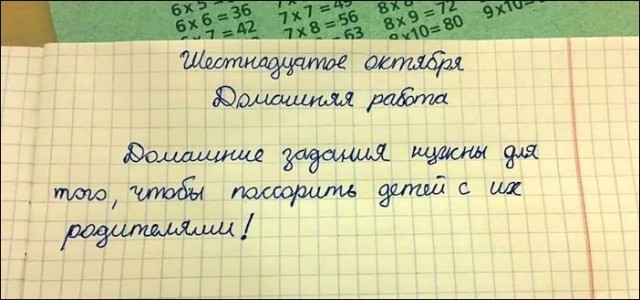 6 x 5 =
6 x 6 = 36
x 7 = 42
7 x 7 = 49
7 x 8 = 56
63
8 x 9 = 72
x 10 = 80
9 x 10 =
Шестнадцатое октября
Домашняя работа
Домашние задания нужны для
того, чтобы поссорить детей с их
родителями!